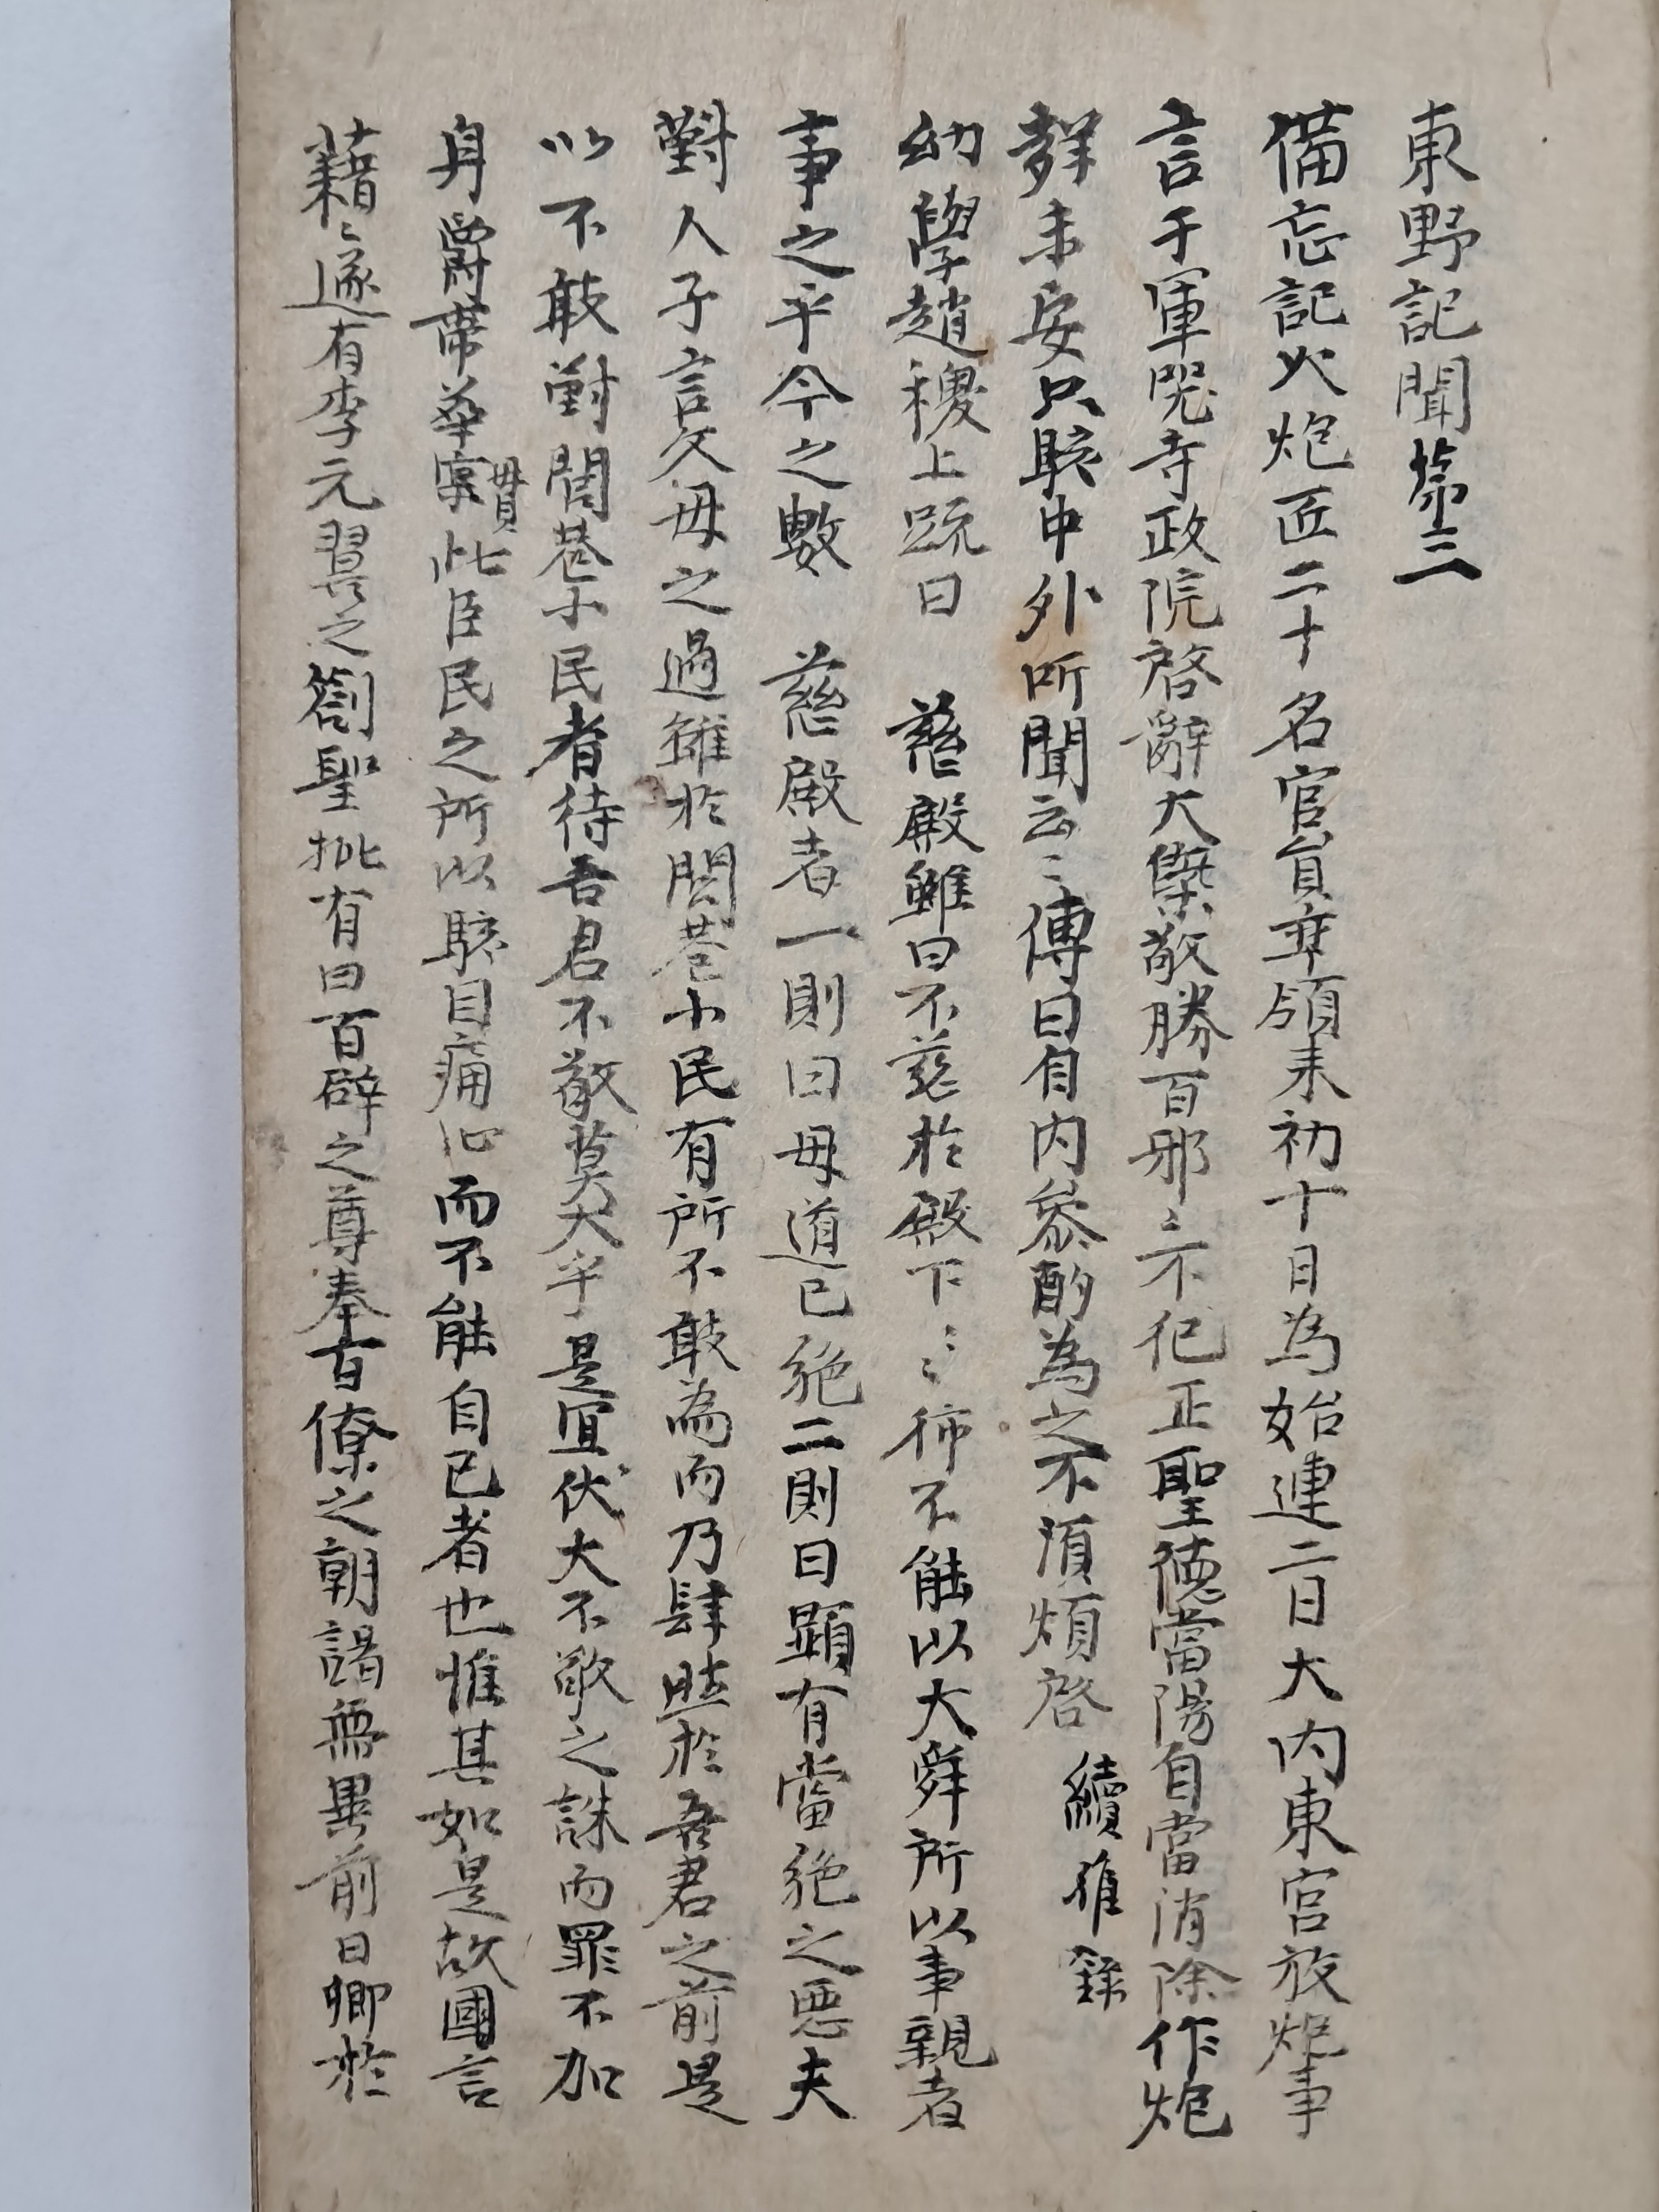 東野記聞第三
備忘記火炮匠二十名官員率領来初十日為始連二日大内東宮放炮事
言于軍器寺政院啓辭大槩敬勝百邪〻不犯正聖德當陽自當消除作炮
未安只駭中外所聞云〻傳曰自内參酌為之不須煩啓 續雜錄
幼學趙㮨上䟽曰 慈殿雖曰不慈於殿下〻〻獨不能以大舜所以事親者
事之乎今之數 慈殿者一則曰母道已絶二則曰顯有當絶之惡夫
對人子言父母之過雖於閭巷小民有所不敢為而乃肆然於吾君之前是
以不敢對閭巷小民者待吾君不敬莫大乎是宜伏大不敬之誅而罪不加
身爵帶華貫此臣民之所以駭目痛心而不能自已者也惟其如是故國言
藉〻遂有李元翼之劄聖批有曰百辟之尊奉百僚之朝謁無異前日卿於